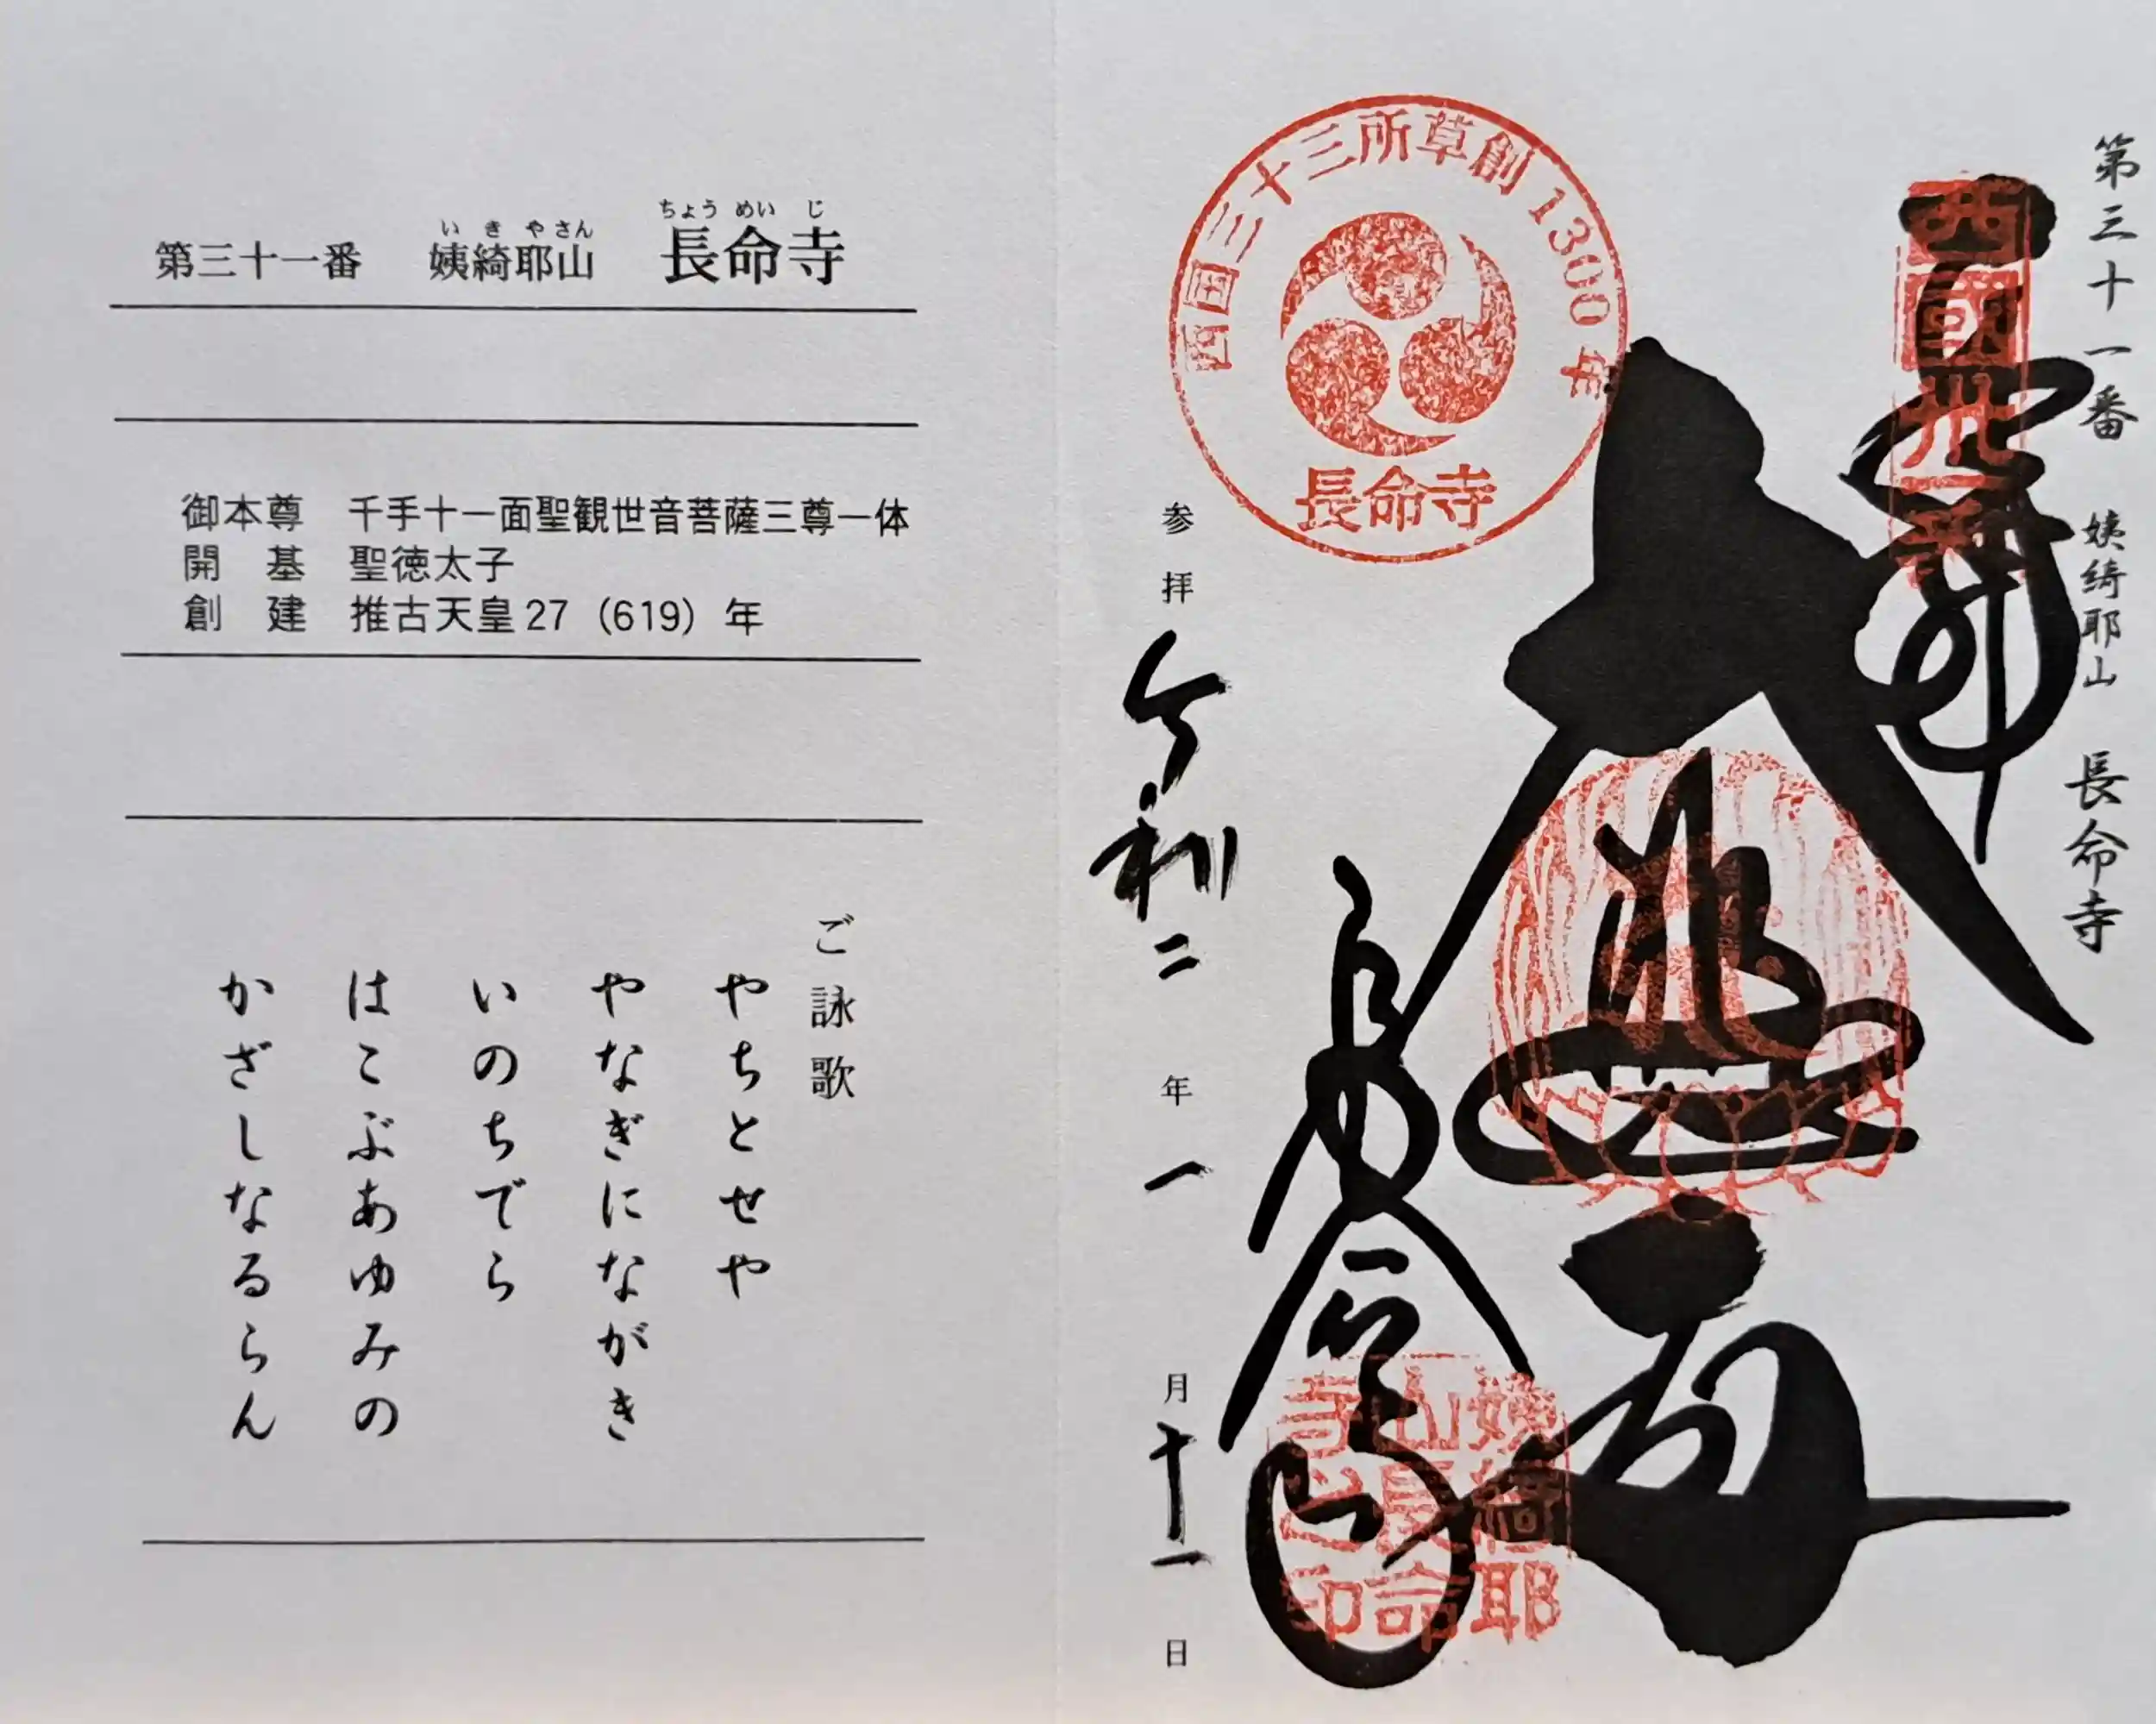 第三十一番 姨綺耶山 長命寺
い き や さん ちょう めい じ
御本尊 千手十一面聖観世音菩薩三尊一体
開 基 聖徳太子
創 建 推古天皇27（619）年
ご詠歌
やちとせや
やなぎにながき
いのちでら
はこぶあゆみの
かざしなるらん
第三十一番 姨綺耶山 長命寺
西國卅一番
奉拝
大悲面
長命寺
姨綺耶山長命寺之印
西国三十三所草創1300年
長命寺
参拝 令和二年一月十一日